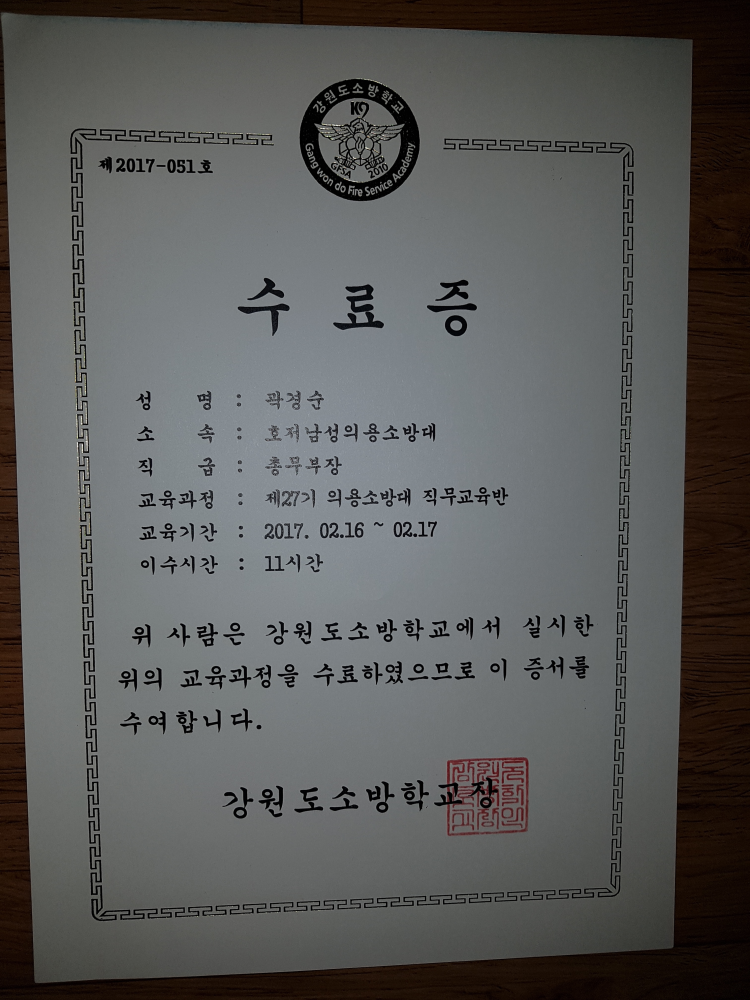 강원도소방학교
K9
GFSA 2010
Gang won do Fire Service Academy
제2017-051호
수료증
성 명 : 곽경순
소 속 : 호저남성의용소방대
직 급 : 총무부장
교육과정 : 제27기 의용소방대 직무교육반
교육기간 : 2017. 02.16 ~ 02.17
이수시간 : 11시간
위 사람은 강원도소방학교에서 실시한
위의 교육과정을 수료하였으므로 이 증서를
수여합니다.
강원도소방학교장